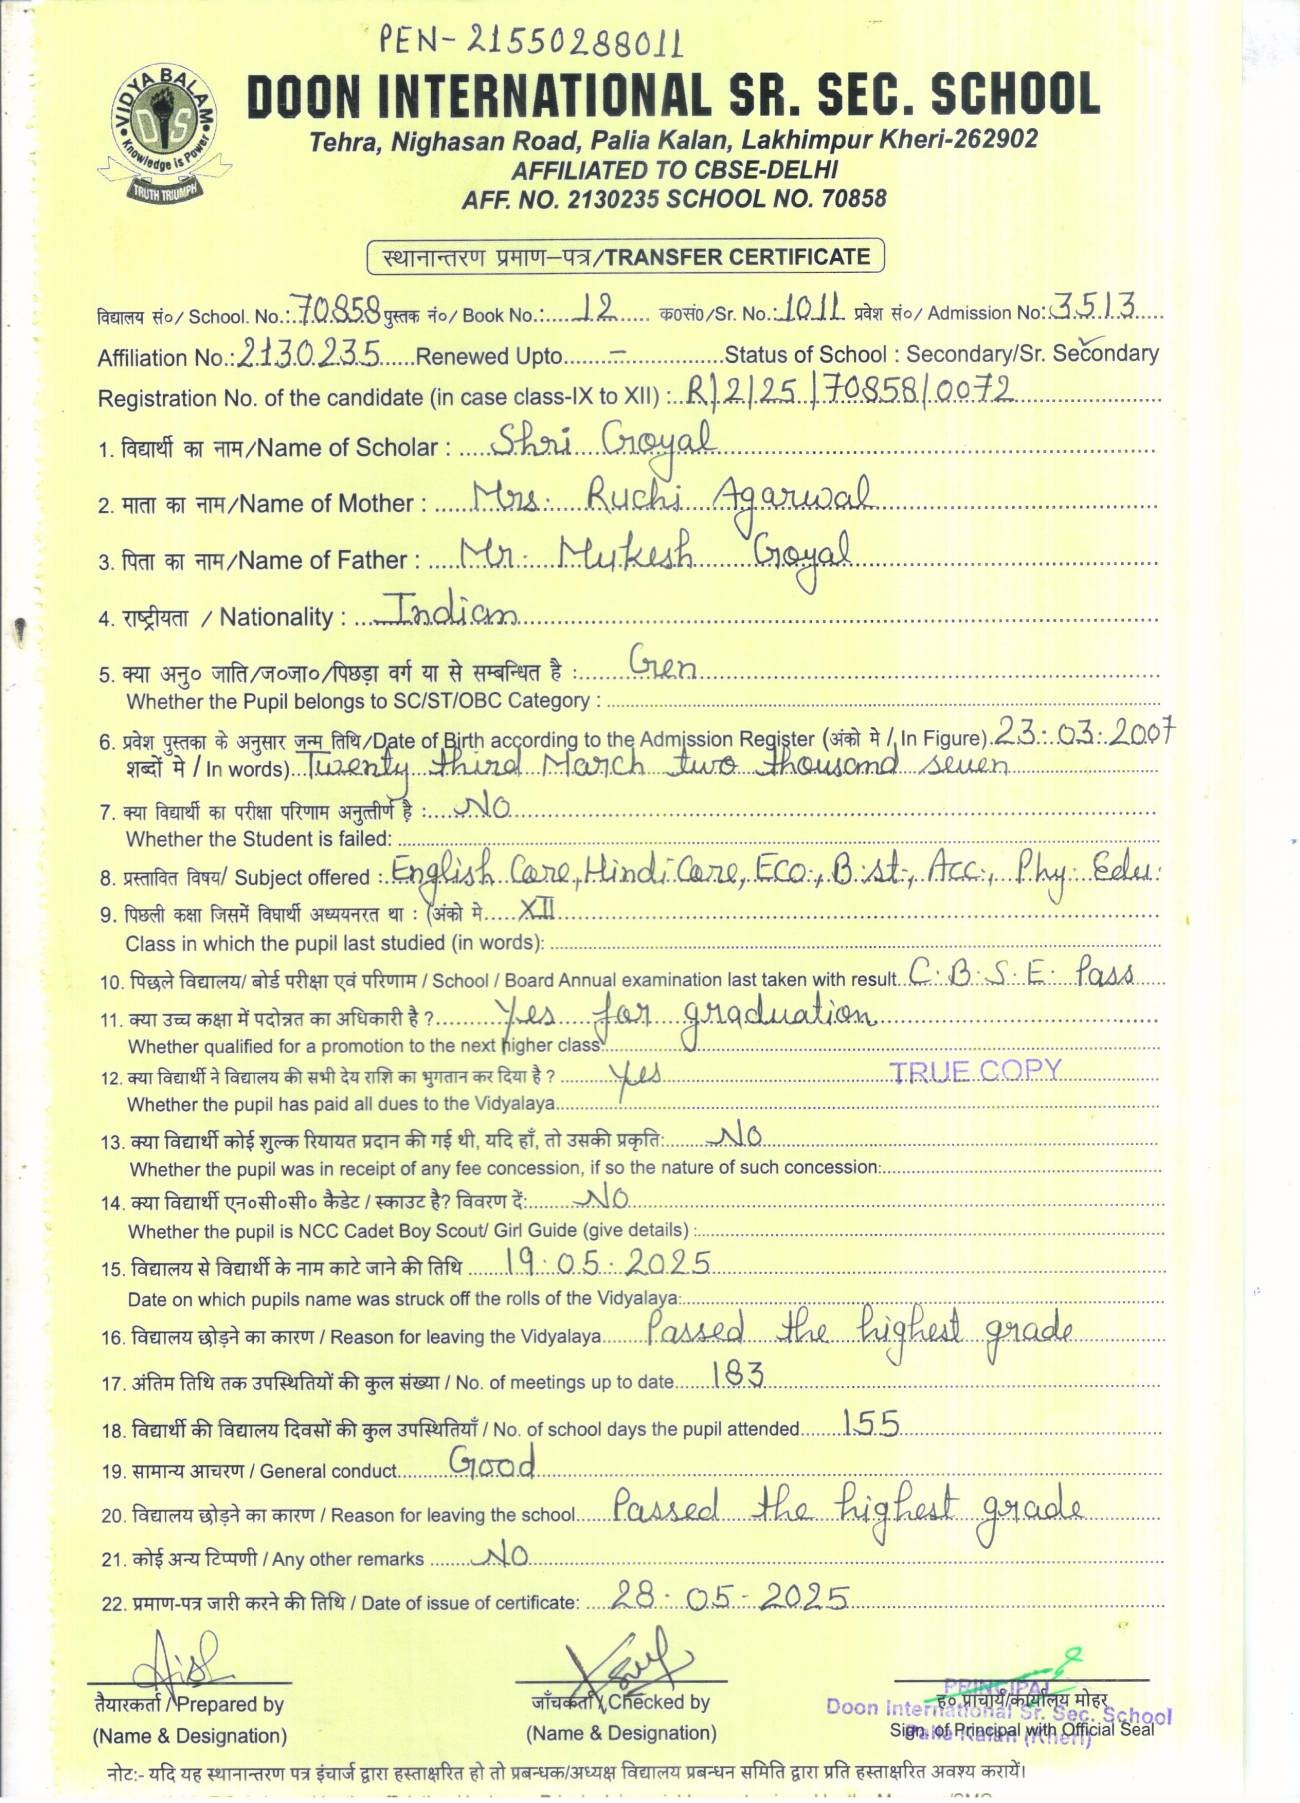 PEN-21550288011
VIDYA BALAM
DIS
Knowledge is Power
TRUTH TRIUMPH
DOON INTERNATIONAL SR. SEC. SCHOOL
Tehra, Nighasan Road, Palia Kalan, Lakhimpur Kheri-262902
AFFILIATED TO CBSE-DELHI
AFF. NO. 2130235 SCHOOL NO. 70858
स्थानान्तरण प्रमाण–पत्र/TRANSFER CERTIFICATE
विद्यालय सं०/ School. No.:70858 पुस्तक नं०/ Book No.: 12 क0सं0/Sr. No.: 1011 प्रवेश सं०/ Admission No: 3513
Affiliation No.: 2130235 Renewed Upto - Status of School : Secondary/Sr. Secondary
Registration No. of the candidate (in case class-IX to XII) : R/2/25/70858/0072
1. विद्यार्थी का नाम/Name of Scholar : Shri Goyal
2. माता का नाम/Name of Mother : Mrs. Ruchi Agarwal
3. पिता का नाम/Name of Father : Mr. Mukesh Goyal
4. राष्ट्रीयता / Nationality : Indian
5. क्या अनु० जाति/ज०जा०/पिछड़ा वर्ग या से सम्बन्धित है : Gen
Whether the Pupil belongs to SC/ST/OBC Category :
6. प्रवेश पुस्तका के अनुसार जन्म तिथि/Date of Birth according to the Admission Register (अंको मे / In Figure) 23.03.2007
शब्दों मे / In words) Twenty third March two thousand seven
7. क्या विद्यार्थी का परीक्षा परिणाम अनुत्तीर्ण है : No
Whether the Student is failed:
8. प्रस्तावित विषय/ Subject offered : English Core, Hindi Core, Eco., B.st., Acc., Phy. Edu.
9. पिछली कक्षा जिसमें विघार्थी अध्ययनरत था : (अंको मे XII
Class in which the pupil last studied (in words):
10. पिछले विद्यालय/ बोर्ड परीक्षा एवं परिणाम / School / Board Annual examination last taken with result C.B.S.E. Pass
11. क्या उच्च कक्षा में पदोन्नत का अधिकारी है ? Yes for graduation
Whether qualified for a promotion to the next higher class
12. क्या विद्यार्थी ने विद्यालय की सभी देय राशि का भुगतान कर दिया है ? Yes TRUE COPY
Whether the pupil has paid all dues to the Vidyalaya
13. क्या विद्यार्थी कोई शुल्क रियायत प्रदान की गई थी, यदि हाँ, तो उसकी प्रकृति: No
Whether the pupil was in receipt of any fee concession, if so the nature of such concession:
14. क्या विद्यार्थी एन०सी०सी० कैडेट / स्काउट है? विवरण दें: No
Whether the pupil is NCC Cadet Boy Scout/ Girl Guide (give details) :
15. विद्यालय से विद्यार्थी के नाम काटे जाने की तिथि 19.05.2025
Date on which pupils name was struck off the rolls of the Vidyalaya:
16. विद्यालय छोड़ने का कारण / Reason for leaving the Vidyalaya Passed the highest grade
17. अंतिम तिथि तक उपस्थितियों की कुल संख्या / No. of meetings up to date 183
18. विद्यार्थी की विद्यालय दिवसों की कुल उपस्थितियाँ / No. of school days the pupil attended 155
19. सामान्य आचरण / General conduct Good
20. विद्यालय छोड़ने का कारण / Reason for leaving the school Passed the highest grade
21. कोई अन्य टिप्पणी / Any other remarks No
22. प्रमाण-पत्र जारी करने की तिथि / Date of issue of certificate: 28.05-2025
तैयारकर्ता / Prepared by
(Name & Designation)
जाँचकर्ता / Checked by
(Name & Designation)
PRINCIPAL
ह० प्राचार्य/कार्यालय मोहर
Doon International Sr. Sec. School
Sign. of Principal with Official Seal
Palia Kalan (Kheri)
नोटः- यदि यह स्थानान्तरण पत्र इंचार्ज द्वारा हस्ताक्षरित हो तो प्रबन्धक/अध्यक्ष विद्यालय प्रबन्धन समिति द्वारा प्रति हस्ताक्षरित अवश्य करायें।